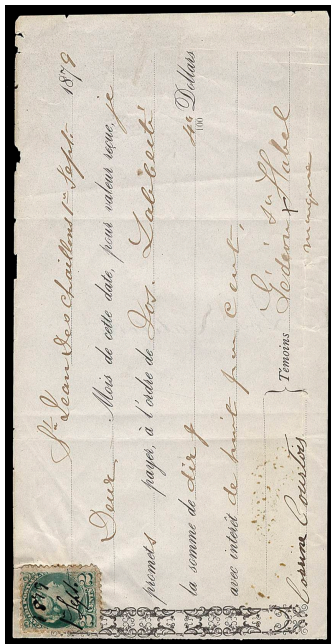 St Jean Deschaillons 1er Sept. 1879
Deux Mois de cette date, pour valeur reçue, je
promets payer, à l'ordre de Jos. Laliberté
la somme de dix 40/100 Dollars
avec intérêt de huit par cent,
Témoins
sa
X
marque
Corinne Courtois
1879
1 Sept